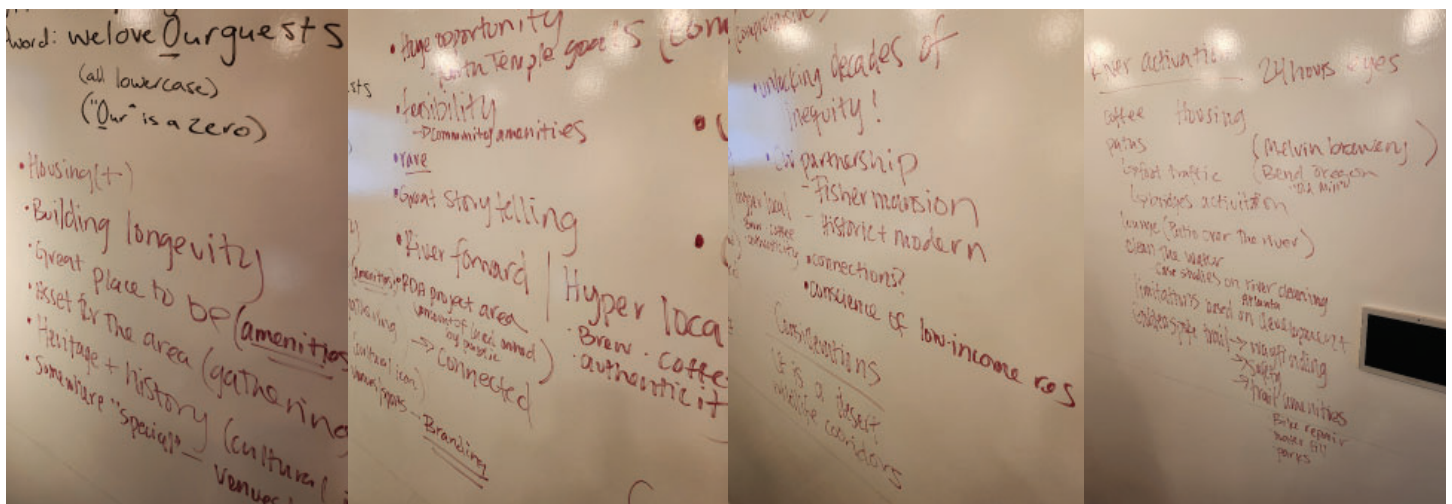 word: welove Ourguests
(all lowercase)
("Our" is a zero)
• Housing (+)
• Building longevity
• Great place to be (amenities
• Asset for the area (gathering
• Heritage + history (cultural
• Somewhere "special" — venues
• Huge opportunity
with Temple goals (com
• feasibility
→ community amenities
• rare
• Great storytelling
• River forward
• RDA project area
amount of land owned
by public
→ Connected
Branding
Hyper loca
• Brew • coffee
• authenticit
(comprehensive)
• unlocking decades of
inequity!
• Civi partnership
- Fisher mansion
- Historic + modern
• connections?
• conscience of low-income res
hyper local
Brew • coffee
• authenticity
Considerations
It is a desert
wildlife corridors
River activation
24 hours eyes
coffee
Housing
paths
(Melvin brewing)
↳ foot traffic
(Bend Oregon
"Old Mill"
↳ bridges activation
lounge (Patio over the river)
clean the water
case studies on river cleaning
Atlanta
limitations based on development
trail → wayfinding
→ safety
→ trail amenities
Bike repair
water fill
parks